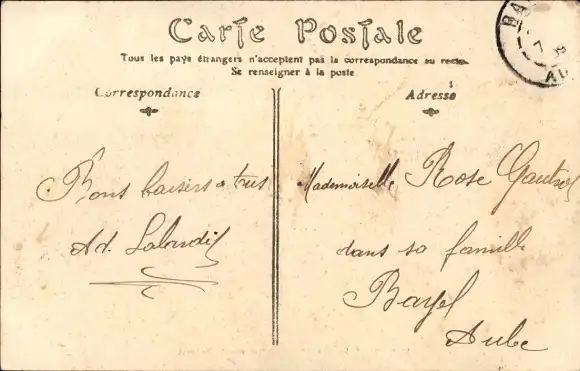 Carte Postale
Tous les pays étrangers n'acceptent pas la correspondance au recto
Se renseigner à la poste
Correspondance
Adresse
Bons baisers a tous
Ad.
Mademoiselle Rose
dans sa famille
Bayel
Aube
BA
AU